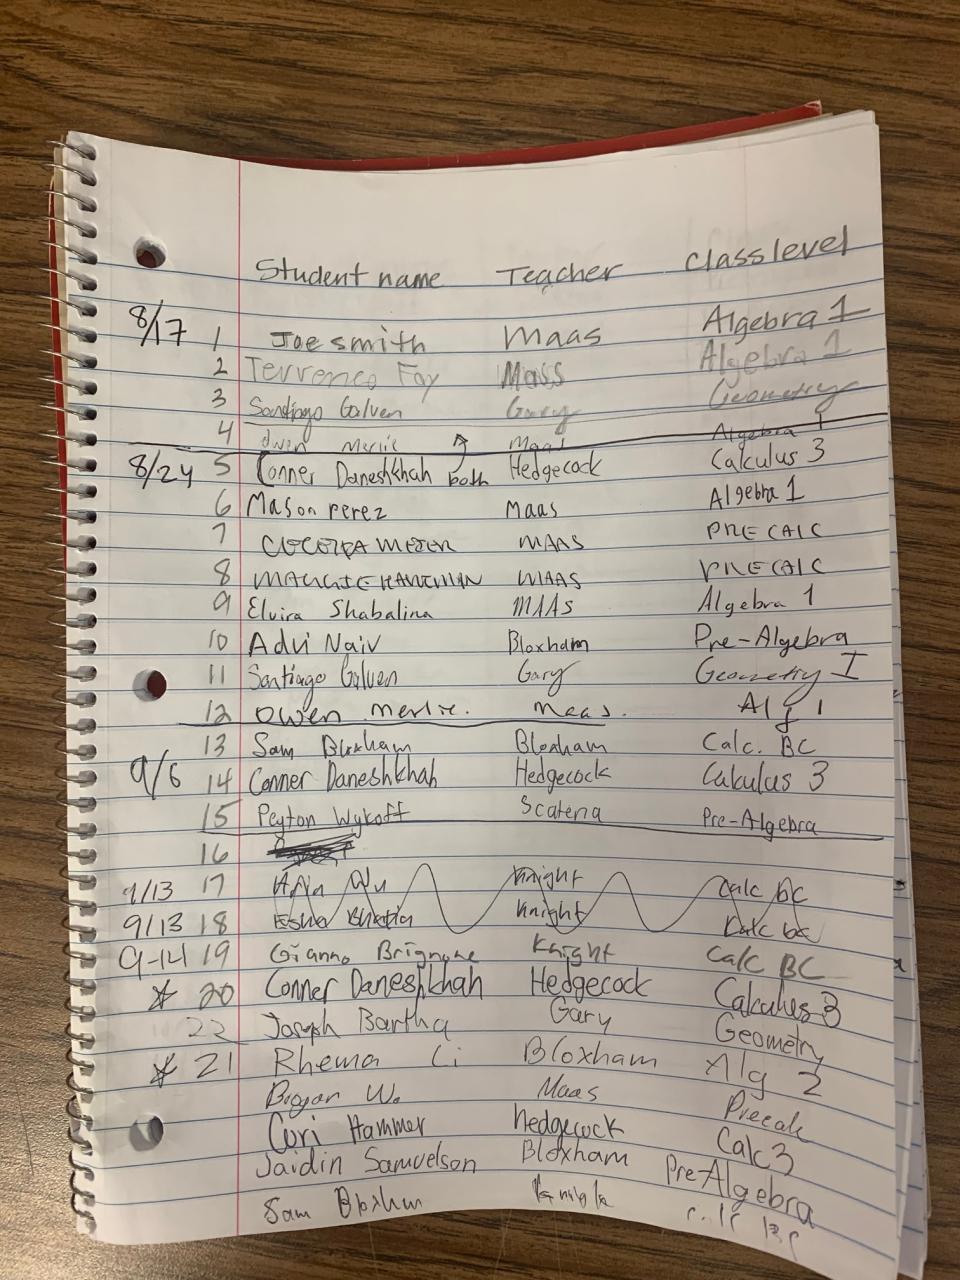 Student name Teacher Class level
8/17 1 Joe smith Maas Algebra 1
2 Terrence Fay Mass Algebra 1
3 Santiago Galven Gary Geometry
4 Owen Merlie Maas Algebra 1
8/24 5 Conner Daneshkhah both Hedgecock Calculus 3
6 Mason perez Maas Algebra 1
7 MAAS PRE CALC
8 MAAS PRE CALC
9 Elvira Shabalina MAAS Algebra 1
10 Advi Nair Bloxham Pre-Algebra
11 Santiago Galven Gary Geometry I
12 Owen merlie. meas. Alg 1
13 Sam Bloxham Bloxham Calc. BC
9/6 14 Conner Daneshkhah Hedgecock Calculus 3
15 Peyton Wykoff Scateria Pre-Algebra
16
9/13 17 Knight Calc BC
9/13 18 Esha Bhatia Knight Calc bc
9-14 19 Gianno Brignone Knight Calc BC
* 20 Conner Daneshkhah Hedgecock Calculus 3
22 Joseph Bartha Gary Geometry
* 21 Rhema Li Bloxham Alg 2
W. Maas Precalc
Cori Hammer Hedgecock Calc 3
Jaidin Samuelson Bloxham Pre-Algebra
Sam Bloxham